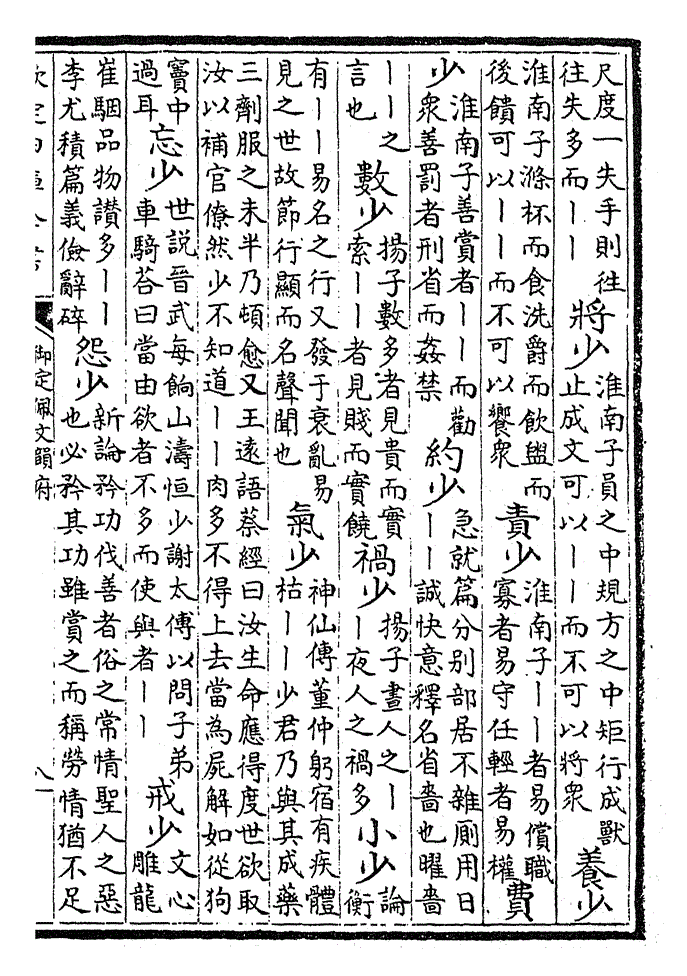 尺度一失手則徃
往失多而丨丨
將少
淮南子員之中規方之中矩行成獸
止成文可以丨丨而不可以將衆
養少
淮南子滌杯而食洗爵而飲盥而
後饋可以丨丨而不可以饗衆
責少
淮南子丨丨者易償職
寡者易守任輕者易權
費
少
淮南子善賞者丨丨而勸
衆善罰者刑省而姦禁
約少
急就篇分别部居不雜厠用日
丨丨誠快意釋名省嗇也曜嗇
丨丨之
言也
數少
揚子數多者見貴而實
索丨丨者見賤而實饒
禍少
揚子晝人之丨
丨夜人之禍多
小少
論
衡
有丨丨易名之行又發于衰亂易
見之世故節行顯而名聲聞也
氣少
神仙傳董仲躬宿有疾體
枯丨丨少君乃與其成藥
三劑服之未半乃頓愈又王遠語蔡經曰汝生命應得度世欲取
汝以補官僚然少不知道丨丨肉多不得上去當為屍解如從狗
竇中
過耳
忘少
世説晉武每餉山濤恒少謝太傅以問子弟
車騎荅曰當由欲者不多而使與者丨丨
戒少
文心
雕龍
崔駰品物讃多丨丨
李尤積篇義儉辭碎
怨少
新論矜功伐善者俗之常情聖人之惡
也必矜其功雖賞之而稱勞情猶不足
御定佩文韻府
八